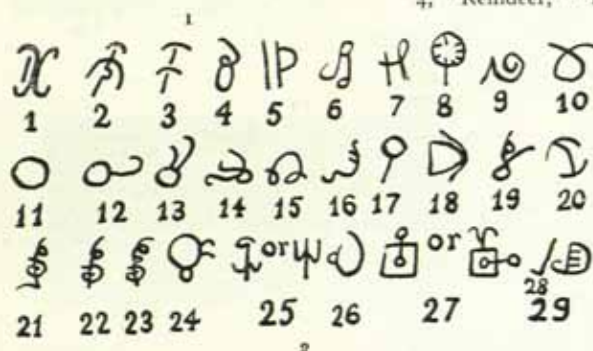 4, Reindeer,
1
1 2 3 4 5 6 7 8 9 10
11 12 13 14 15 16 17 18 19 20
or or
28
21 22 23 24 25 26 27 29
2